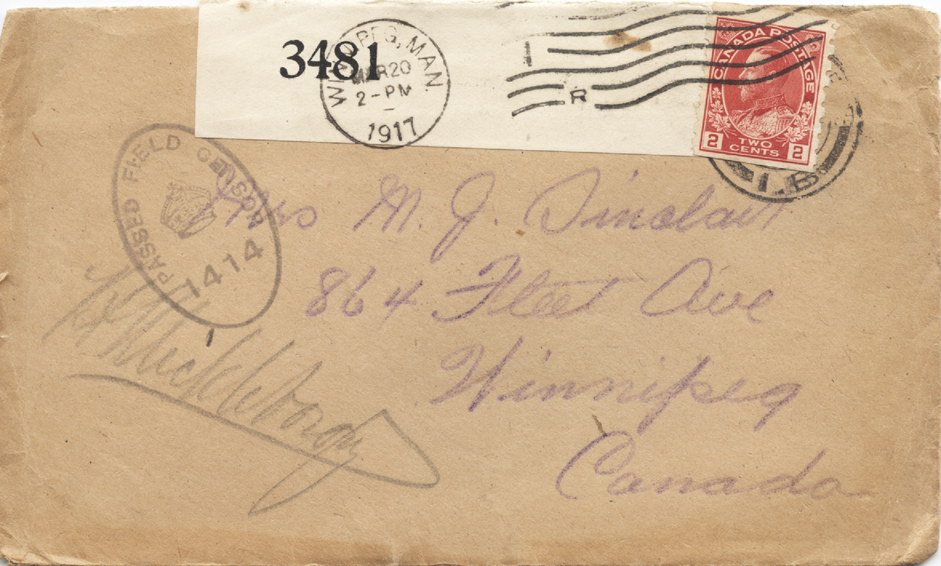 3481
WINNIPEG, MAN.
MAR 20
2-PM
1917
I
R
CANADA POSTAGE
2 TWO CENTS 2
PASSED FIELD CENSOR
1414
Mrs M. J. Sinclair
864 Fleet Ave
Winnipeg
Canada